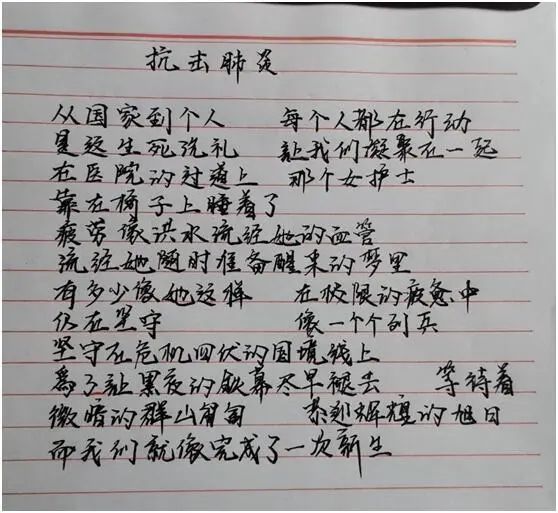 抗击肺炎
从国家到个人 每个人都在行动
是这生死洗礼 让我们凝聚在一起
在医院的过道上 那个女护士
靠在椅子上睡着了
疲劳像洪水流经她的血管
流经她随时准备醒来的梦里
有多少像她这样 在极限的疲惫中
仍在坚守 像一个个列兵
坚守在危机四伏的国境线上
为了让黑夜的铁幕尽早褪去 等待着
微暗的群山匍匐 辉煌的旭日
而我们就像完成了一次新生